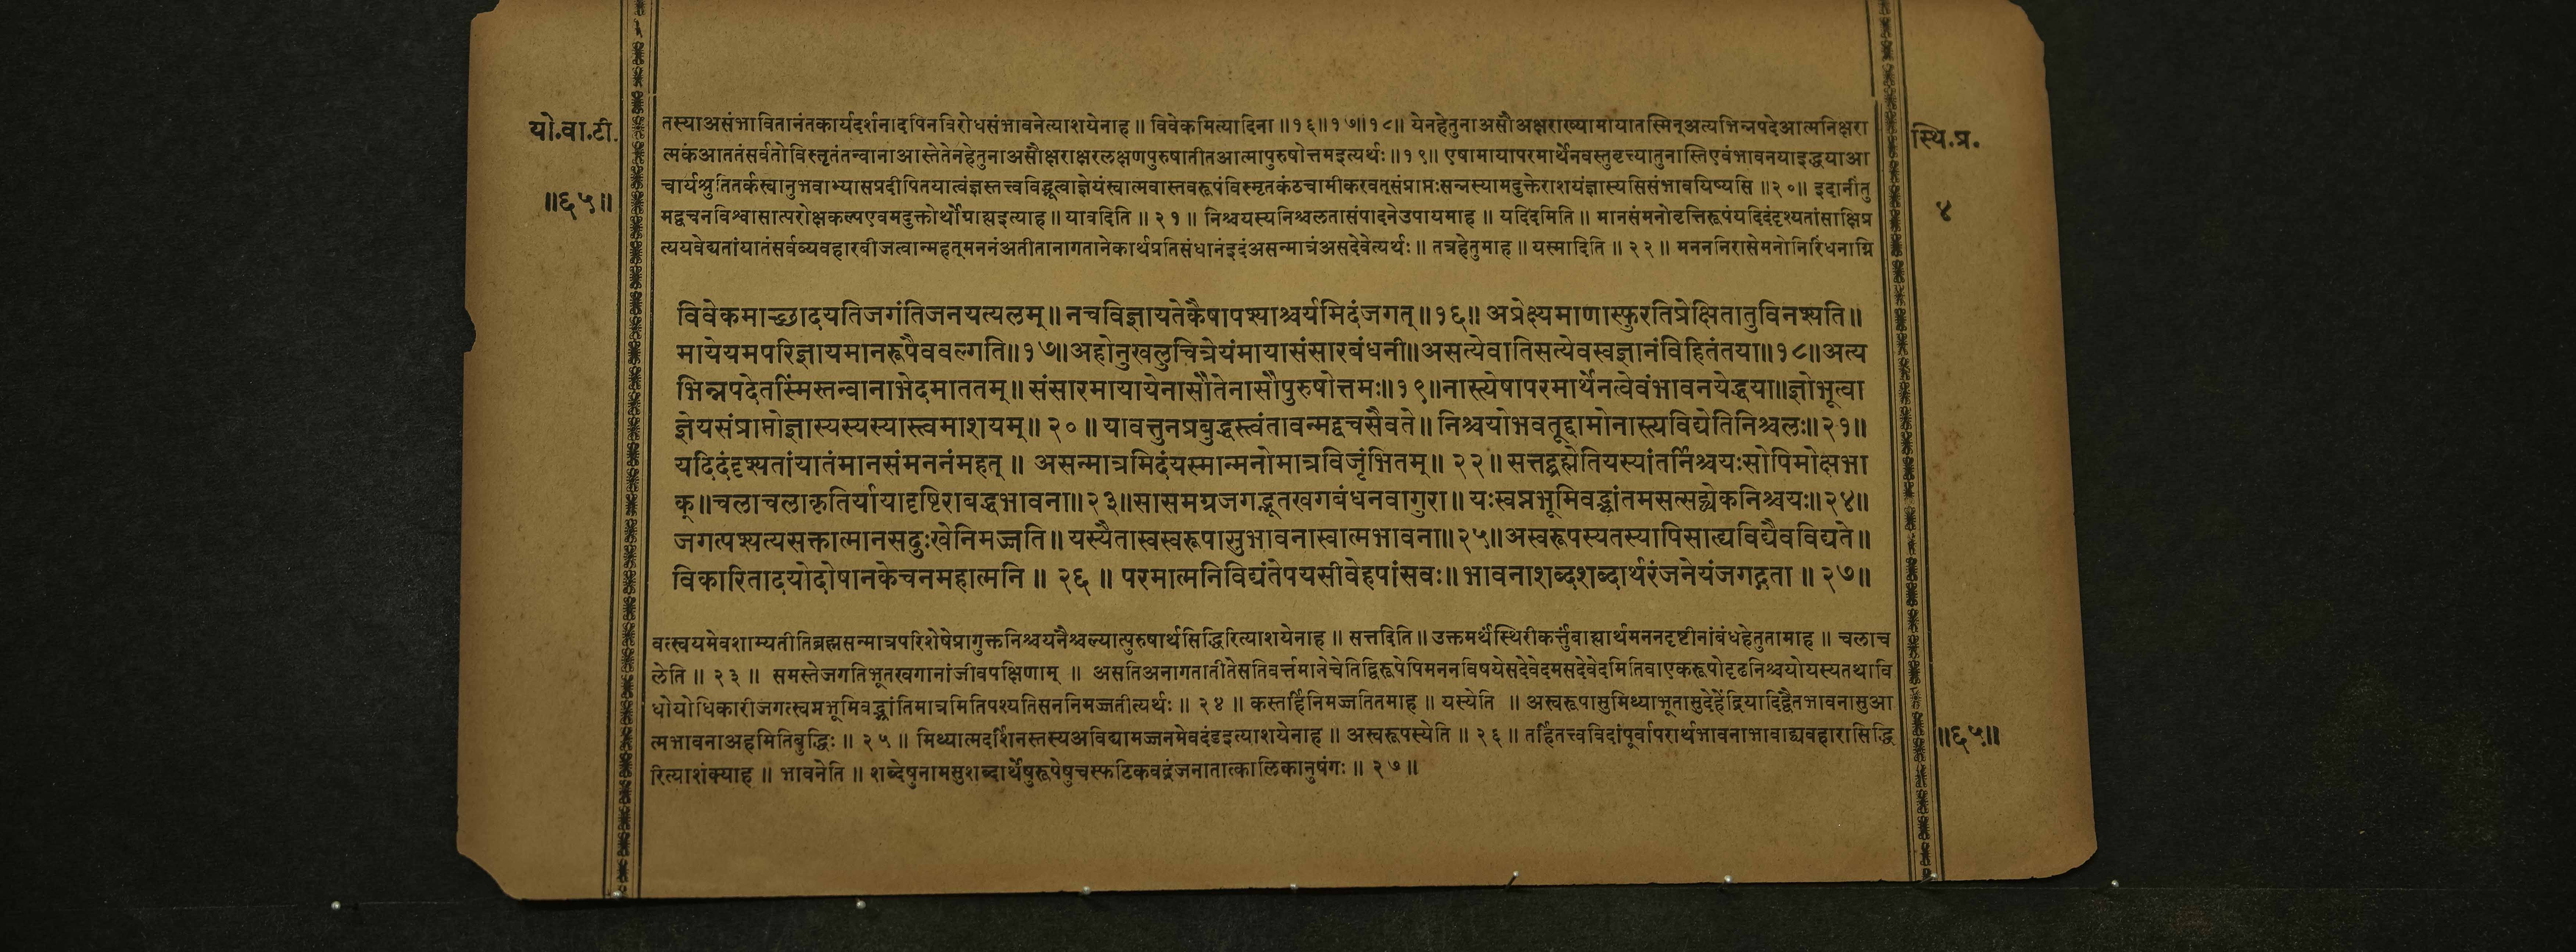 यो.वा.टी.
॥६५॥
तस्याअसंभावितानंतकार्यदर्शनादपिनविरोधसंभावनेत्याशयेनाह ॥ विवेकमित्यादिना ॥१६॥१७॥१८॥ येनहेतुनाअसौअक्षराख्यामायातस्मिन्अत्यभिन्नपदेआत्मनिक्षरा
त्मकंआततंसर्वतोविस्तृतंतन्वानाआस्तेतेनहेतुनाअसौक्षराक्षरलक्षणपुरुषातीतआत्मापुरुषोत्तमइत्यर्थः ॥१९॥ एषामायापरमार्थेनवस्तुवृत्त्यातुनास्तिएवंभावनयाइद्धयाआ
चार्यश्रुतितर्कस्वानुभवाभ्यासप्रदीपितयात्वंज्ञस्तत्त्वविद्भूत्वाज्ञेयंस्वात्मवास्तवरूपंविस्मृतकंठचामीकरवत्संप्राप्तःसन्नस्यामदुक्तेराशयंज्ञास्यसिसंभावयिष्यसि ॥२०॥ इदानींतु
मद्वचनविश्वासात्परोक्षकल्पएवमदुक्तोर्थोग्राह्यइत्याह ॥ यावदिति ॥ २१ ॥ निश्चयस्यनिश्चलतासंपादनेउपायमाह ॥ यदिदमिति ॥ मानसंमनोवृत्तिरूपंयदिदंदृश्यतांसाक्षिप्र
त्ययवेद्यतांयातंसर्वव्यवहारबीजत्वान्महत्मननंअतीतानागतानेकार्थप्रतिसंधानंइदंअसन्मात्रंअसदेवेत्यर्थः ॥ तत्रहेतुमाह ॥ यस्मादिति ॥ २२ ॥ मनननिरासेमनोनिरिंधनाग्नि
विवेकमाच्छादयतिजगंतिजनयत्यलम्॥ नचविज्ञायतेकैषापश्याश्चर्यमिदंजगत्॥१६॥ अप्रेक्ष्यमाणास्फुरतिप्रेक्षितातुविनश्यति॥
मायेयमपरिज्ञायमानरूपैववल्गति॥१७॥अहोनुखलुचित्रेयंमायासंसारबंधनी॥असत्येवातिसत्येवस्वज्ञानंविहितंतया॥१८॥अत्य
भिन्नपदेतस्मिंस्तन्वानाभेदमाततम्॥ संसारमायायेनासौतेनासौपुरुषोत्तमः॥१९॥नास्त्येषापरमार्थेनत्वेवंभावनयेद्धया॥ज्ञोभूत्वा
ज्ञेयसंप्राप्तोज्ञास्यस्यस्यास्त्वमाशयम्॥ २० ॥ यावत्तुनप्रबुद्धस्त्वंतावन्मद्वचसैवते॥ निश्चयोभवतूद्दामोनास्त्यविद्येतिनिश्चलः॥२१॥
यदिदंदृश्यतांयातंमानसंमननंमहत् ॥ असन्मात्रमिदंयस्मान्मनोमात्रविजृंभितम्॥ २२॥ सत्तद्ब्रह्मेतियस्यांतर्निश्चयःसोपिमोक्षभा
क्॥चलाचलाकृतिर्यायादृष्टिराबद्धभावना॥२३॥सासमग्रजगद्भूतखगबंधनवागुरा॥ यःस्वप्नभूमिवद्भ्रांतमसत्सद्ध्येकनिश्चयः॥२४॥
जगत्पश्यत्यसक्तात्मानसदुःखेनिमज्जति॥ यस्यैतास्वस्वरूपासुभावनास्वात्मभावना॥२५॥अस्वरूपस्यतस्यापिसात्द्यविद्यैवविद्यते॥
विकारितादयोदोषानकेचनमहात्मनि ॥ २६ ॥ परमात्मनिविद्यंतेपयसीवेहपांसवः॥ भावनाशब्दशब्दार्थरंजनेयंजगद्गता ॥ २७॥
वत्स्वयमेवशाम्यतीतिब्रह्मसन्मात्रपरिशेषेप्रागुक्तनिश्चयनैश्चल्यात्पुरुषार्थसिद्धिरित्याशयेनाह ॥ सत्तदिति॥ उक्तमर्थंस्थिरीकर्त्तुंबाह्यार्थमननदृष्टीनांबंधहेतुतामाह ॥ चलाच
लेति ॥ २३ ॥ समस्तेजगतिभूतखगानांजीवपक्षिणाम् ॥ असतिअनागतातीतेसतिवर्त्तमानेचेतिद्विरूपेपिमननविषयेसदेवेदमसदेवेदमितिवाएकरूपोदृढनिश्चयोयस्यतथावि
धोयोधिकारीजगत्स्वप्नभूमिवद्भ्रांतिमात्रमितिपश्यतिसननिमज्जतीत्यर्थः ॥ २४ ॥ कस्तर्हिनिमज्जतितमाह ॥ यस्येति ॥ अस्वरूपासुमिथ्याभूतासुदेहेंद्रियादिद्वैतभावनासुआ
त्मभावनाअहमितिबुद्धिः ॥ २५ ॥ मिथ्यात्मदर्शिनस्तस्यअविद्यामज्जनमेवदंडइत्याशयेनाह ॥ अस्वरूपस्येति ॥ २६ ॥ तर्हितत्त्वविदांपूर्वापरार्थभावनाभावाद्व्यवहारासिद्धि
रित्याशंक्याह ॥ भावनेति ॥ शब्देषुनामसुशब्दार्थेषुरूपेषुचस्फटिकवद्रंजनातात्कालिकानुषंगः ॥ २७ ॥
स्थि.प्र.
४
॥६५॥